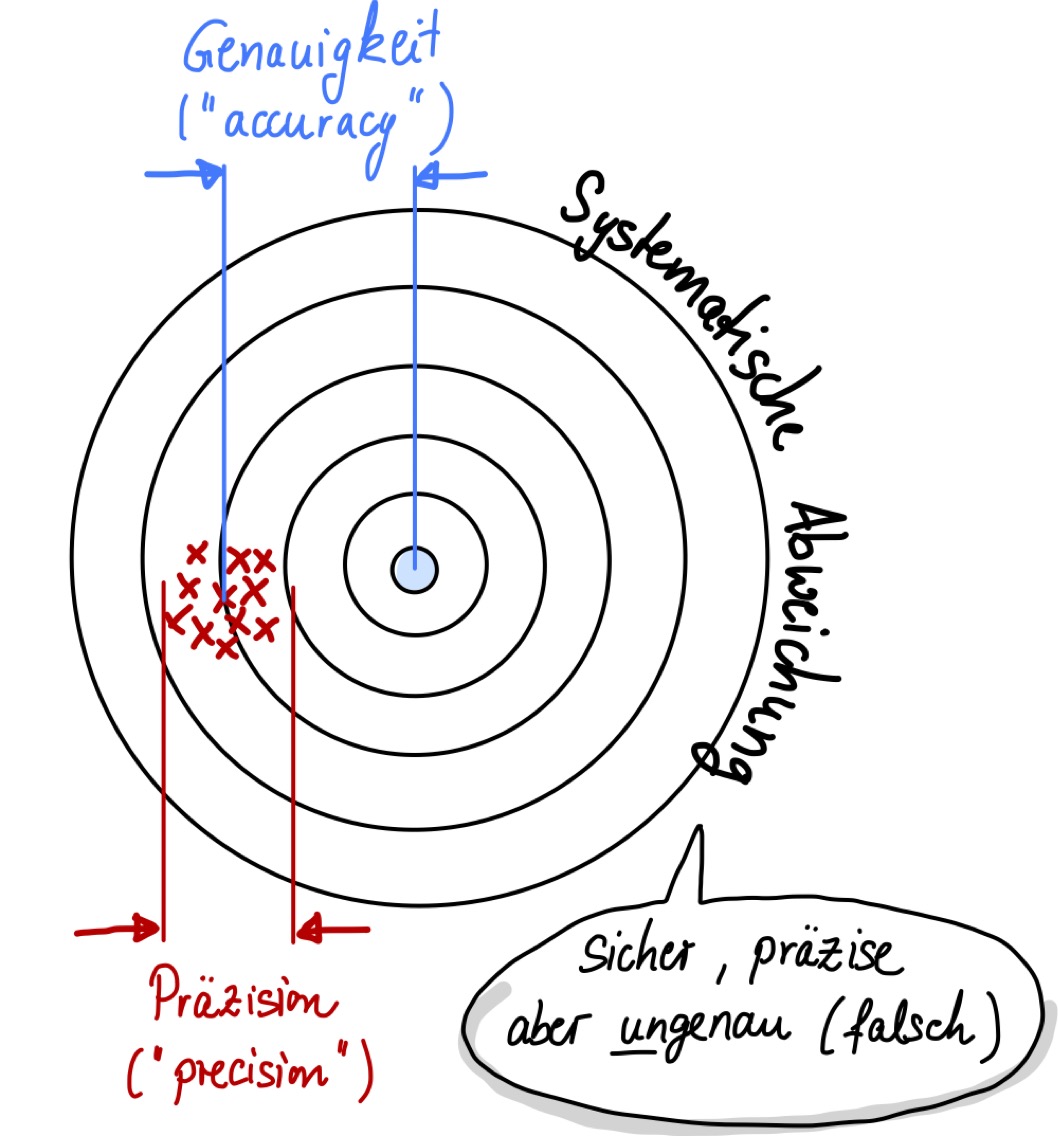 Genauigkeit
("accuracy")
Systematische
Abweichung
Präzision
("precision")
sicher, präzise
aber ungenau (falsch)